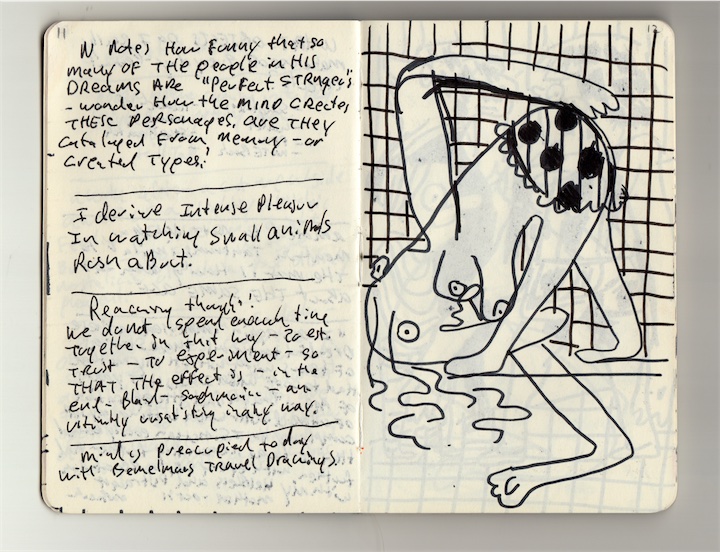 11
N Notes How Funny that so
many OF THE people in HIS
DREAMS ARE "Perfect STRangers"
- wonder How the MIND Creates
THESE personages, are THey
Cataloged From Memory - or
Created Types?
I derive Intense Pleasure
In watching Small animals
Rush about.
Recurring thought!
We do not spend enough time
Together in this way - To est.
Trust - To experiment - so
THAT THE effect is - in the
end - Bland - - an
ultimately unsatisfying in any way.
mind is preoccupied today
with Bemelmans Travel Drawings.